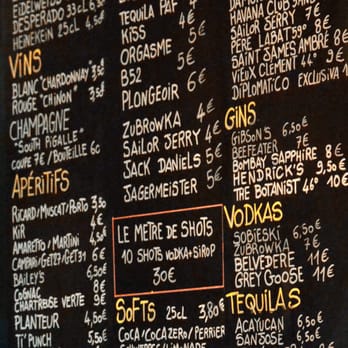 EIDELWEISS
DESPERADO 33CL 6,50
HEINEKEIN 25CL 4,50
VINS
BLANC "CHARDONNAY" 3,50
ROUGE "CHINON" 3,50
CHAMPAGNE
"SOUTH PIGALLE"
COUPE 7€/BOUTEILLE 60
APÉRITIFS
RICARD/MUSCAT/PORTO 3,50
KIR 4€
AMARETTO/MARTINI 4,50
CAMPARI/GET27/GET31 6€
BAILEY'S 6,50€
COGNAC 8€
CHARTREUSE VERTE 9€
PLANTEUR 4,50€
TI' PUNCH 5,50
TEQUILA PAF 4€
KISS
ORGASME 5€
B52 5€
PLONGEOIR 6€
ZUBROWKA 4€
SAILOR JERRY 4€
JACK DANIELS 5€
JAGERMEISTER 5€
LE METRE DE SHOTS
10 SHOTS VODKA+SIROP
30€
SOFTS 25CL 3,80€
COCA/COCA ZERO/PERRIER
DAMOISEAU
HAVANA CLUB 3ANS
SAILOR JERRY 7€
PERE LABAT 59°
SAINT SAMES AMBRÉ 8€
VIEUX CLÉMENT 44° 9€
DIPLOMATICO EXCLUSIVA
GINS
GIBSON'S 6,50€
BEEFEATER 7€
BOMBAY SAPPHIRE 8€
HENDRICK'S 9,50€
THE BOTANIST 46° 10€
VODKAS
SOBIESKI 6,50€
ZUBROWKA 7€
BELVEDERE 11€
GREY GOOSE 11€
TEQUILAS
ACAYUCAN 6,50€
SAN JOSE 6,50€